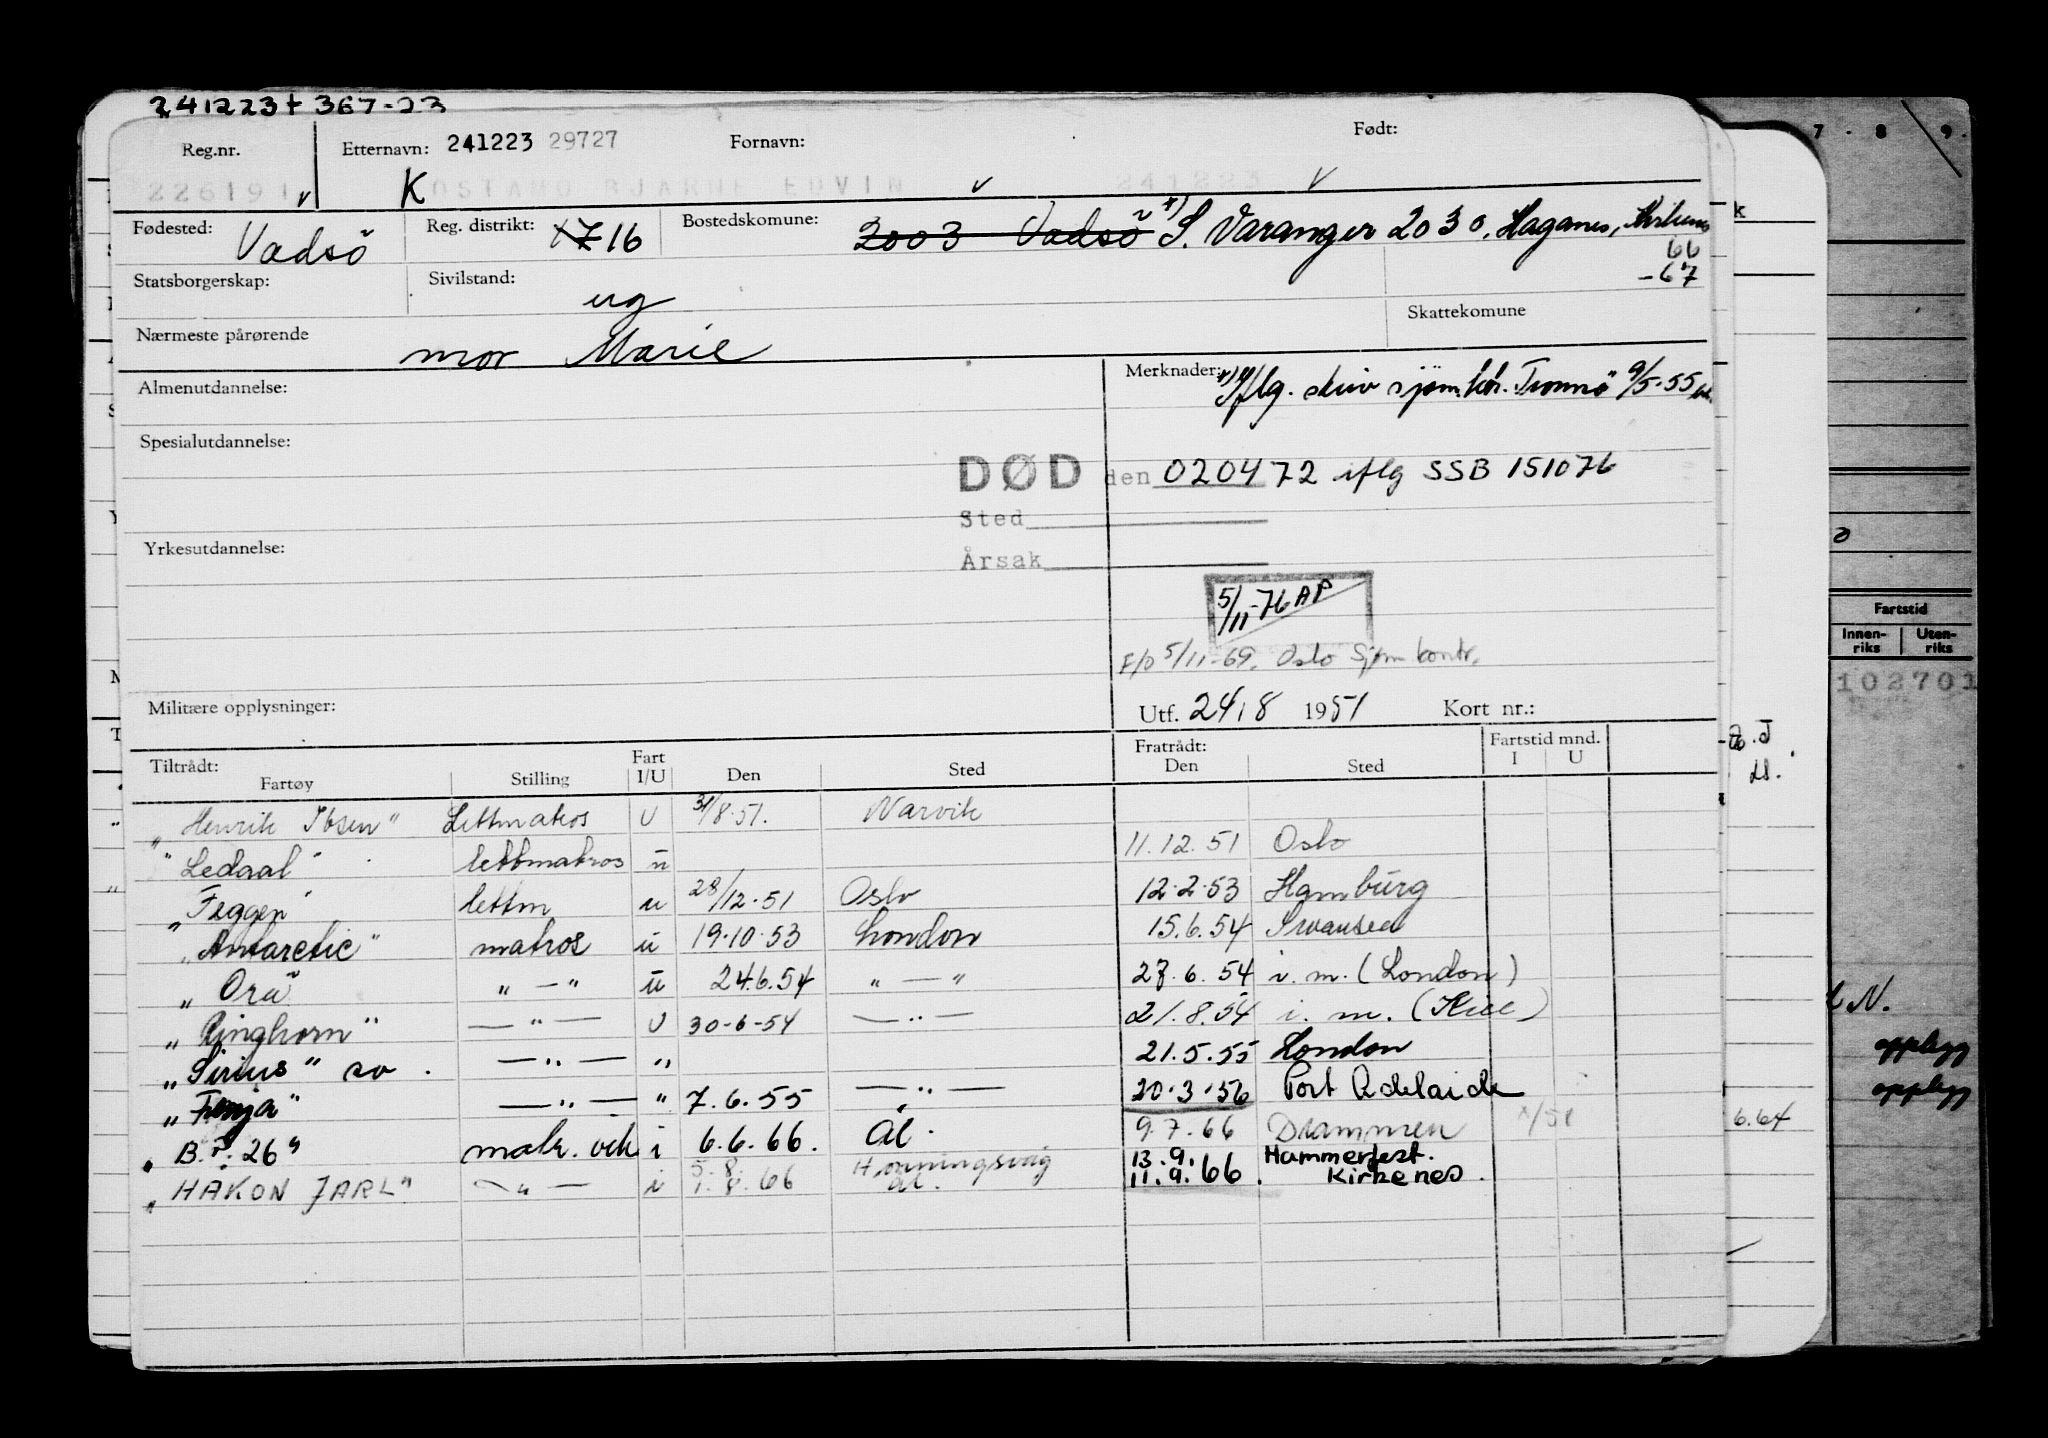 241223+ 367-23
Reg.nr. Etternavn: 241223 29727 Fornavn: Født:
226191 KOSTAMO BJARNE EDVIN 241223
Fødested: Vadsö Reg. distrikt: 716 Bostedskomune: 2003 Vadsö S. Varanger 2030, Haganes,
66
-67
Statsborgerskap: Sivilstand: ug
Skattekomune
Nærmeste pårørende mor Marie
Almenutdannelse: Merknader: x) Iflg. skriv sjøm.ktr. Tromsö 9/5-55
Spesialutdannelse:
DØD den 020472 iflg SSB 151076
Sted
Yrkesutdannelse: Årsak
5/11-76 AP
F/O 5/11-69. Oslo Sjøm kontr.
Militære opplysninger: Utf. 24/8 1951 Kort nr.:
Tiltrådt: Fart Fratrådt: Fartstid mnd.
Fartøy Stilling I/U Den Sted Den Sted I U
"Henrik Ibsen" Lettmatros U 31/8-51. Narvik
"Ledaal" lettmatros u 11.12.51 Oslo
"Feggen" lettm u 28/12-51 Oslo 12-2-53 Hamburg
"Antarctic" matros u 19-10-53 London 15.6.54 Swansea
"Ora" " — " u 24.6.54 " — " 27.6.54 i.m. (London)
"Ringhorn" — " — U 30-6-54 — " — 21.8.54 i.m. (Kiel)
"Sirius" sv. — " — " 21.5.55 London
"Fenja" — " — " 7.6.55 — " — 20-3-56 Port Adelaide
"B.P. 26" matr. vek i 6.6.66. Ål. 9.7.66 Drammen
5.8. Honningsvåg 13.9. Hammerfest.
"HAKON JARL" — " — i 1.8.66 ål. 11.9.66. Kirkenes.
7 - 8 9.
Fartstid
Innen-riks Uten-riks
102701
N.
opplegg
opplegg
6.64